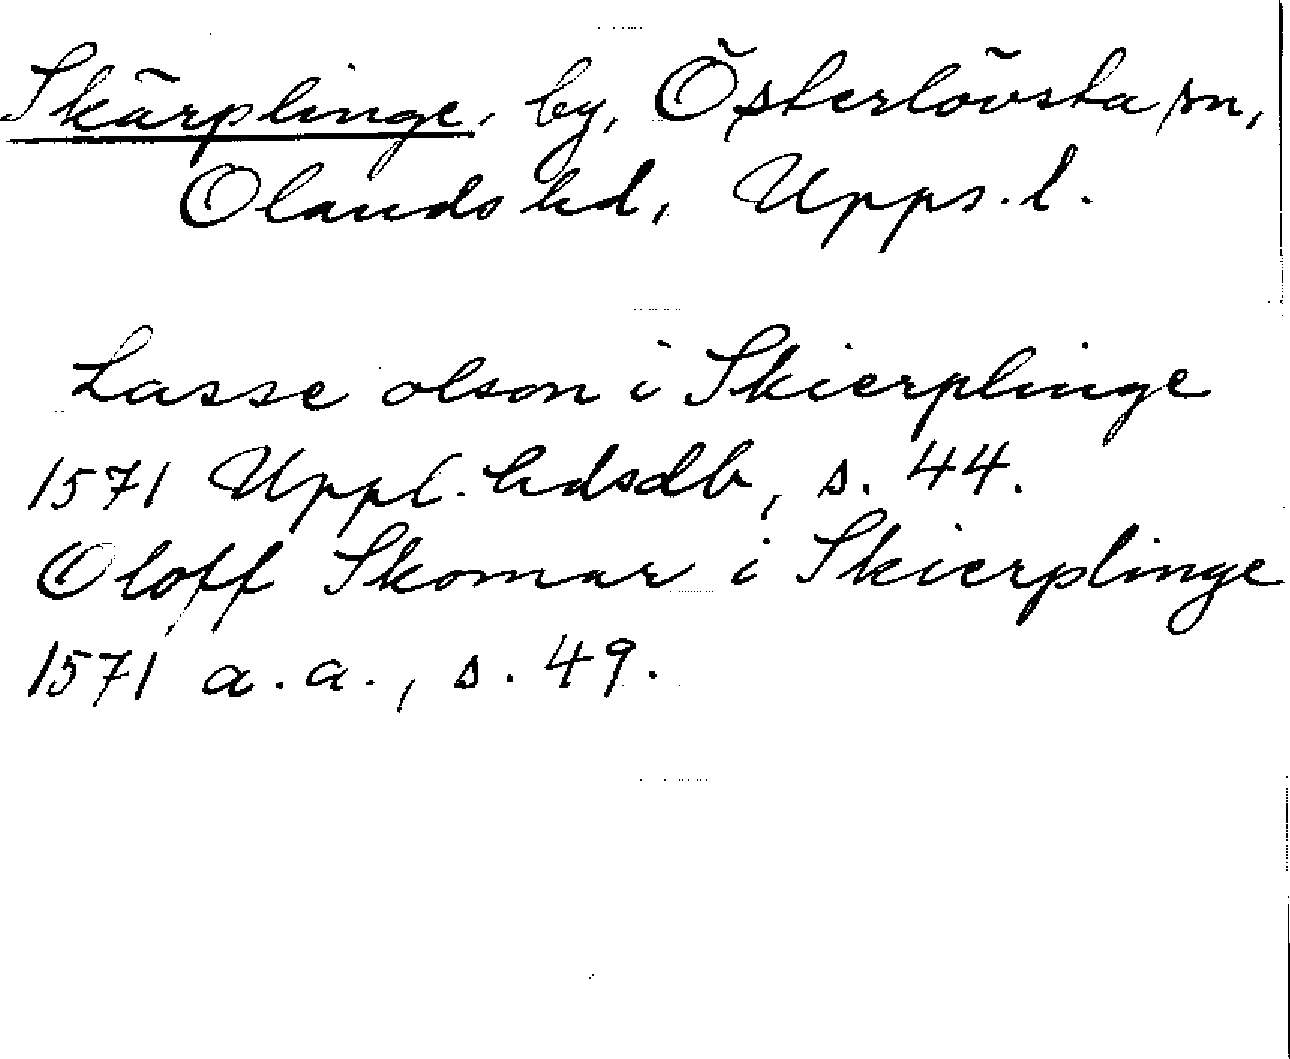 Skärplinge, by, Österlövsta sn,
Olands hd, Upps. l.
Lasse olson i Skierplinge
1571 Uppl. hdsdb, s. 44.
Oloff Skomar i Skierplinge
1571 a.a., s. 49.